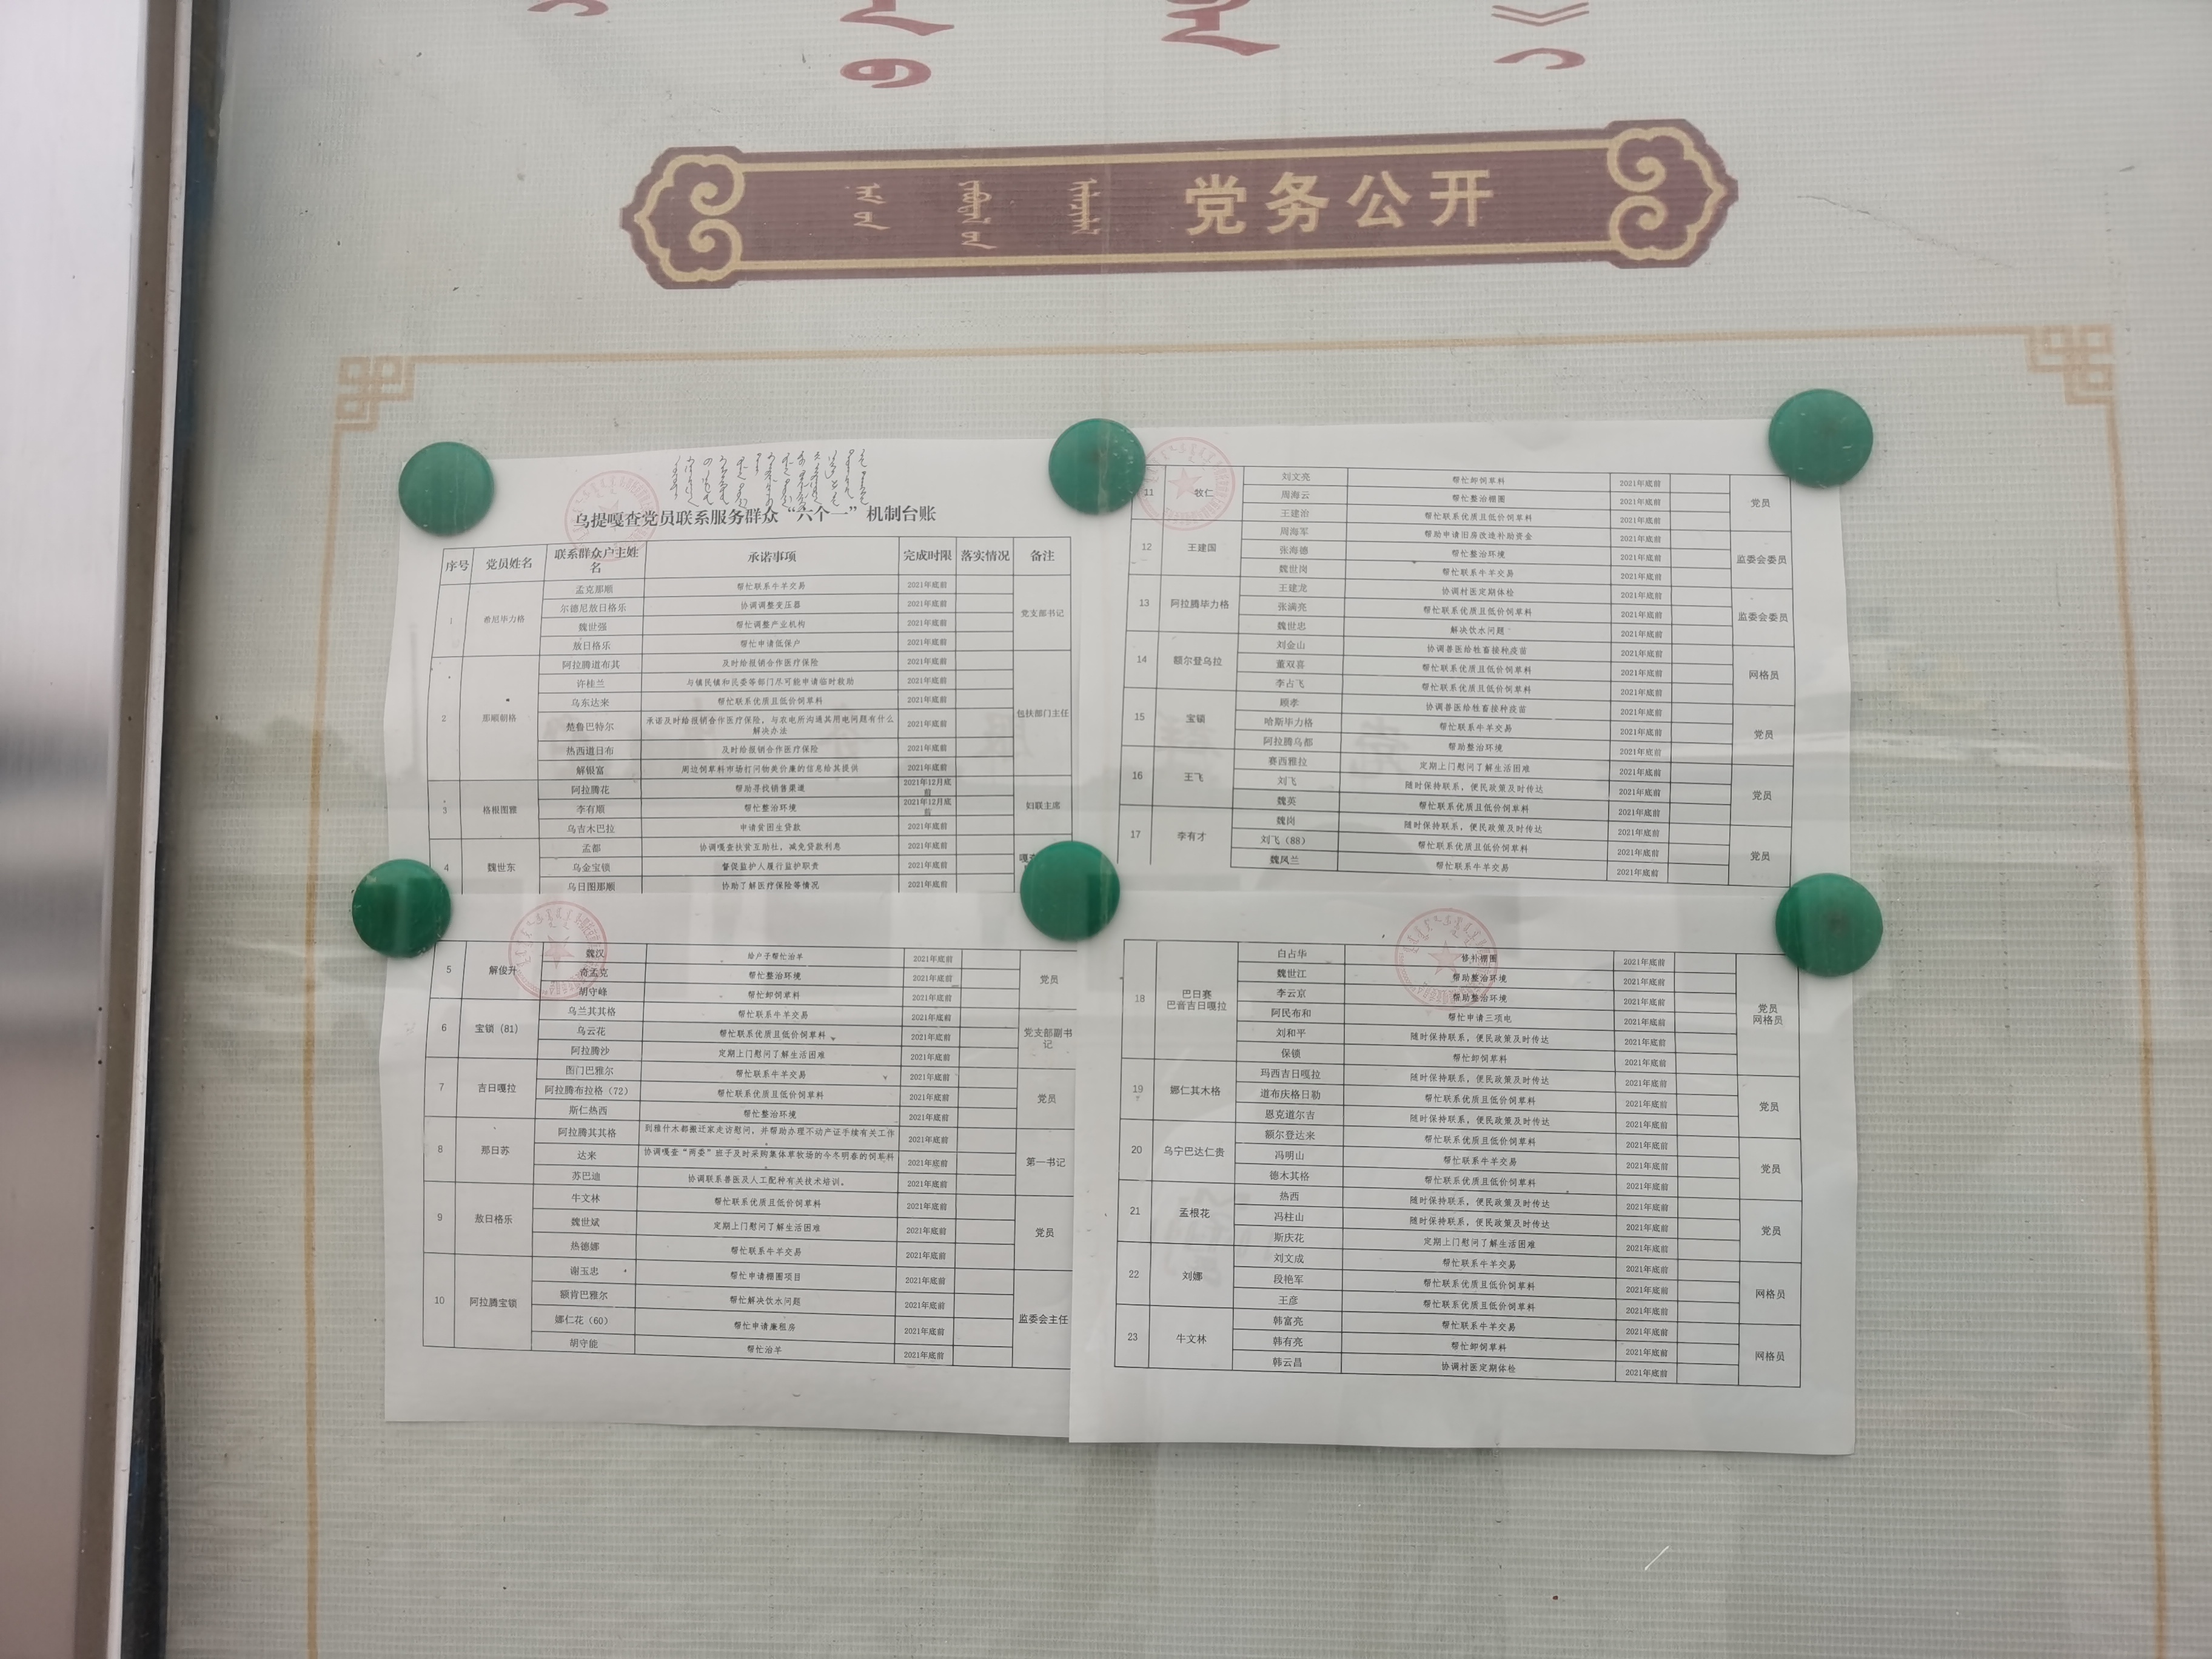 党务公开
乌提嘎查党员联系服务群众“六个一”机制台账
序号 党员姓名 联系群众户主姓名 承诺事项 完成时限 落实情况 备注
1 希尼毕力格 孟克那顺 帮忙联系牛羊交易 2021年底前 党支部书记
尔德尼敖日格乐 协调调整变压器 2021年底前
魏世强 帮忙调整产业机构 2021年底前
敖日格乐 帮忙申请低保户 2021年底前
2 那顺朝格 阿拉腾道布其 及时给报销合作医疗保险 2021年底前 包扶部门主任
许桂兰 与镇民镇和民委等部门尽可能申请临时救助 2021年底前
乌东达来 帮忙联系优质且低价饲草料 2021年底前
楚鲁巴特尔 承诺及时给报销合作医疗保险，与农电所沟通其用电问题有什么解决办法 2021年底前
热西道日布 及时给报销合作医疗保险 2021年底前
解银富 周边饲草料市场打问物美价廉的信息给其提供 2021年底前
3 格根图雅 阿拉腾花 帮助寻找销售渠道 2021年12月底前 妇联主席
李有顺 帮忙整治环境 2021年12月底前
乌吉木巴拉 申请贫困生贷款 2021年底前
4 魏世东 孟都 协调嘎查扶贫互助社，减免贷款利息 2021年底前 嘎
乌金宝锁 督促监护人履行监护职责 2021年底前
乌日图那顺 协助了解医疗保险等情况 2021年底前
5 解俊升 魏汉 给户子帮忙治羊 2021年底前 党员
奇孟克 帮忙整治环境 2021年底前
胡守峰 帮忙卸饲草料 2021年底前
6 宝锁（81） 乌兰其其格 帮忙联系牛羊交易 2021年底前 党支部副书记
乌云花 帮忙联系优质且低价饲草料 2021年底前
阿拉腾沙 定期上门慰问了解生活困难 2021年底前
7 吉日嘎拉 图门巴雅尔 帮忙联系牛羊交易 2021年底前 党员
阿拉腾布拉格（72） 帮忙联系优质且低价饲草料 2021年底前
斯仁热西 帮忙整治环境 2021年底前
8 那日苏 阿拉腾其其格 到雅什木都搬迁家走访慰问，并帮助办理不动产证手续有关工作 2021年底前 第一书记
达来 协调嘎查“两委”班子及时采购集体草牧场的今冬明春的饲草料 2021年底前
苏巴迪 协调联系兽医及人工配种有关技术培训。 2021年底前
9 敖日格乐 牛文林 帮忙联系优质且低价饲草料 2021年底前 党员
魏世斌 定期上门慰问了解生活困难 2021年底前
热德娜 帮忙联系牛羊交易 2021年底前
10 阿拉腾宝锁 谢玉忠 帮忙申请棚圈项目 2021年底前 监委会主任
额肯巴雅尔 帮忙解决饮水问题 2021年底前
娜仁花（60） 帮忙申请廉租房 2021年底前
胡守能 帮忙治羊 2021年底前
11 牧仁 刘文亮 帮忙卸饲草料 2021年底前 党员
周海云 帮忙整治棚圈 2021年底前
王建治 帮忙联系优质且低价饲草料 2021年底前
12 王建国 周海军 帮助申请旧房改造补助资金 2021年底前 监委会委员
张海德 帮忙整治环境 2021年底前
魏世岗 帮忙联系牛羊交易 2021年底前
13 阿拉腾毕力格 王建龙 协调村医定期体检 2021年底前 监委会委员
张满亮 帮忙联系优质且低价饲草料 2021年底前
魏世忠 解决饮水问题 2021年底前
14 额尔登乌拉 刘金山 协调兽医给牲畜接种疫苗 2021年底前 网格员
董双喜 帮忙联系优质且低价饲草料 2021年底前
李占飞 帮忙联系优质且低价饲草料 2021年底前
15 宝锁 顾孝 协调兽医给牲畜接种疫苗 2021年底前 党员
哈斯毕力格 帮忙联系牛羊交易 2021年底前
阿拉腾乌都 帮助整治环境 2021年底前
16 王飞 赛西雅拉 定期上门慰问了解生活困难 2021年底前 党员
刘飞 随时保持联系，便民政策及时传达 2021年底前
魏英 帮忙联系优质且低价饲草料 2021年底前
17 李有才 魏岗 随时保持联系，便民政策及时传达 2021年底前 党员
刘飞（88） 帮忙联系优质且低价饲草料 2021年底前
魏凤兰 帮忙联系牛羊交易 2021年底前
18 巴日赛 巴音吉日嘎拉 白占华 修补棚圈 2021年底前 党员 网格员
魏世江 帮助整治环境 2021年底前
李云京 帮助整治环境 2021年底前
阿民布和 帮忙申请三项电 2021年底前
刘和平 随时保持联系，便民政策及时传达 2021年底前
保锁 帮忙卸饲草料 2021年底前
19 娜仁其木格 玛西吉日嘎拉 随时保持联系，便民政策及时传达 2021年底前 党员
道布庆格日勒 帮忙联系优质且低价饲草料 2021年底前
恩克道尔吉 随时保持联系，便民政策及时传达 2021年底前
20 乌宁巴达仁贵 额尔登达来 帮忙联系优质且低价饲草料 2021年底前 党员
冯明山 帮忙联系牛羊交易 2021年底前
德木其格 帮忙联系优质且低价饲草料 2021年底前
21 孟根花 热西 随时保持联系，便民政策及时传达 2021年底前 党员
冯柱山 随时保持联系，便民政策及时传达 2021年底前
斯庆花 定期上门慰问了解生活困难 2021年底前
22 刘娜 刘文成 帮忙联系牛羊交易 2021年底前 网格员
段艳军 帮忙联系优质且低价饲草料 2021年底前
王彦 帮忙联系优质且低价饲草料 2021年底前
23 牛文林 韩富亮 帮忙联系牛羊交易 2021年底前 网格员
韩有亮 帮忙卸饲草料 2021年底前
韩云昌 协调村医定期体检 2021年底前